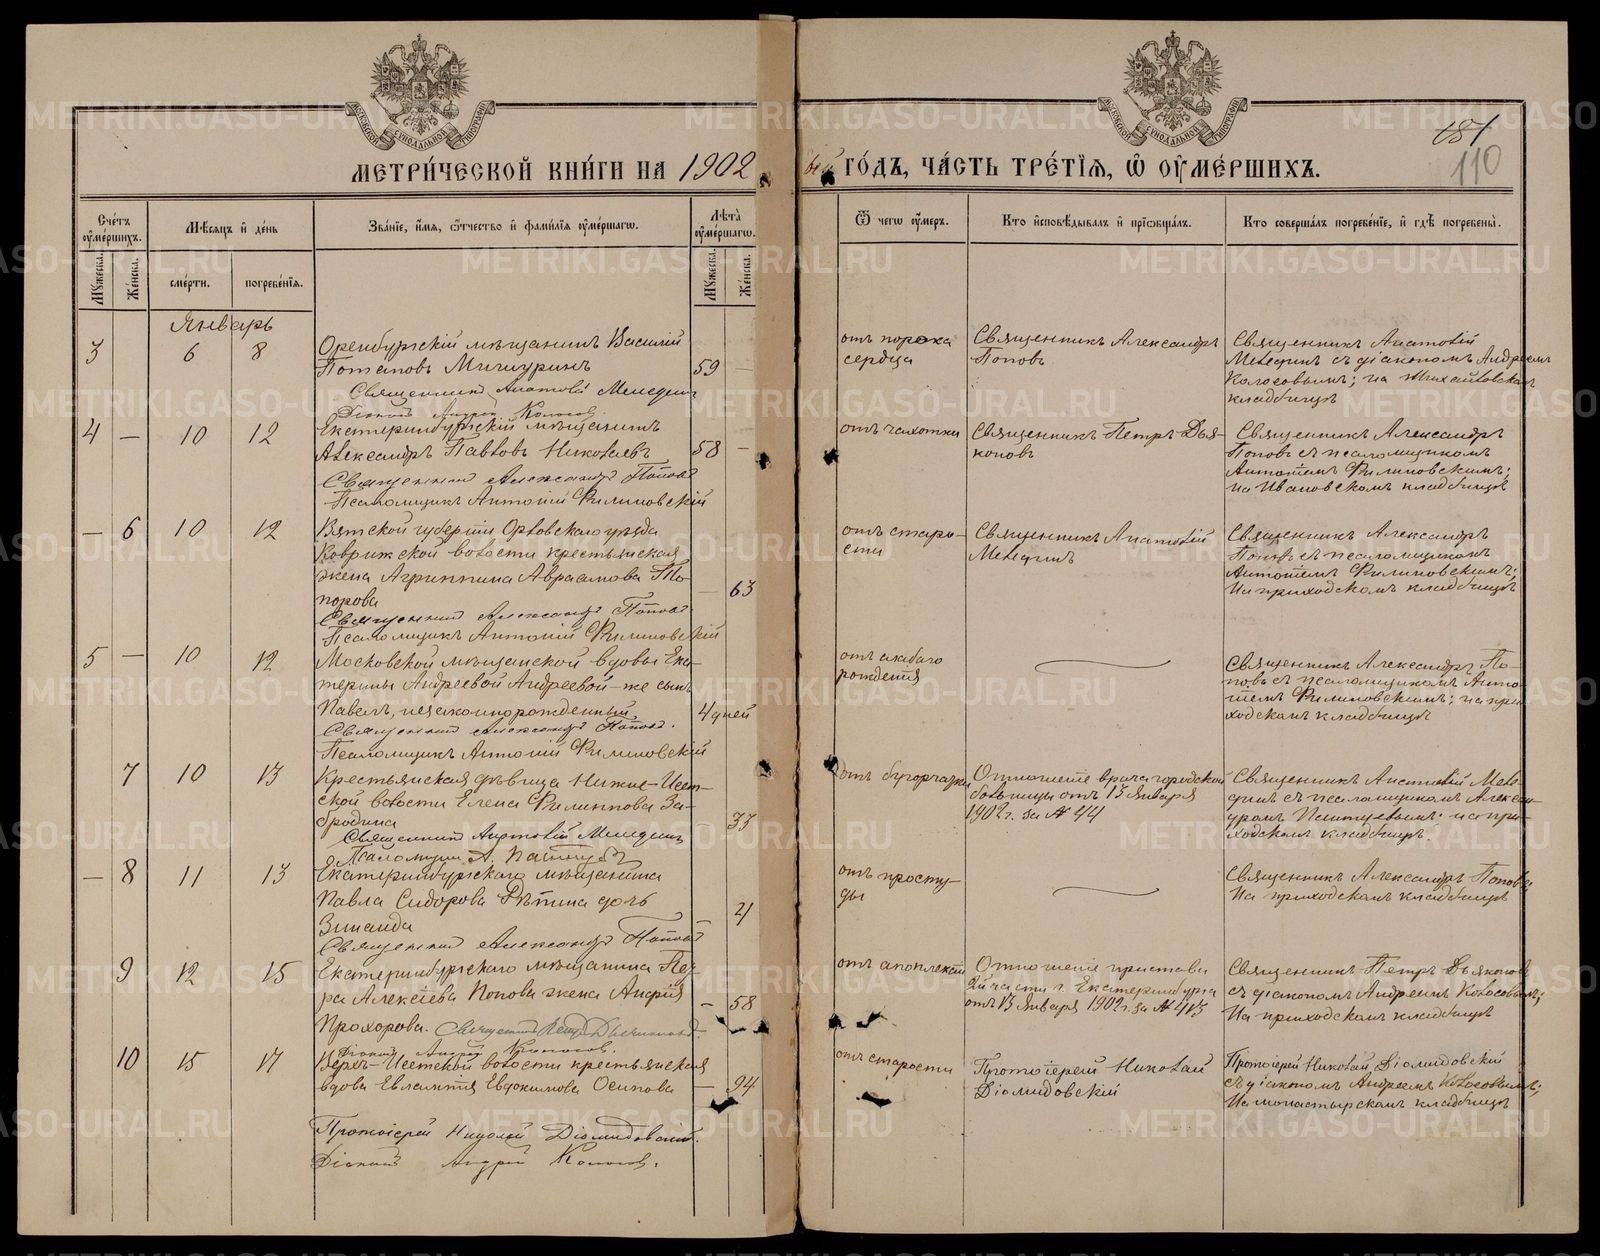 МЕТРИ́ЧЕСКОЙ КНИ́ГИ НА 1902
ый ГО́ДЪ, ЧА́СТЬ ТРЕ́ТІѦ, Ѽ ОУ҆МЕ́РШИХЪ.
181
110
МОСКОВСКОЙ СѴНОДАЛЬНОЙ ТИПОГРАФІИ
МОСКОВСКОЙ СѴНОДАЛЬНОЙ ТИПОГРАФІИ
Сче́тъ оу҆ме́ршихъ.
Мѣсяцъ и҆ де́нь
Зва́ніе, и҆́мя, ѻ҆́тчество и҆ фами́лія оу҆ме́ршагѡ.
Лѣта̀ оу҆ме́ршагѡ.
Ѿ чегѡ̀ оу҆́меръ.
Кто̀ и҆сповѣ́дывалъ и҆ прїѡбща́лъ.
Кто̀ соверша́лъ погребе́ніе, и҆ гдѣ̀ погребены̀.
Му́жеска.
Же́нска.
сме́рти.
погребе́нїѧ.
Му́жеска.
Же́нска.
Январь
3
6
8
Оренбургскій мѣщанинъ Василій
Потаповъ Мичуринъ
59
—
Священникъ Анатолій Меледин
Діаконъ Андрей Колосов.
отъ порока
сердца
Священникъ Александръ
Поповъ
Священникъ Анатолій
Мелединъ съ діакономъ Андреемъ
Колосовымъ; на Михайловскомъ
кладбищѣ
4
—
10
12
Екатеринбургскій мѣщанинъ
Александръ Павловъ Николаевъ
58
—
Священникъ Александръ Попов
Псаломщикъ Антоній Филиповскій
отъ чахотки
Священникъ Петръ Дья-
коновъ
Священникъ Александръ
Поповъ съ псаломщикомъ
Антоніемъ Филиповскимъ;
на Ивановскомъ кладбищѣ
—
6
10
12
Вятской губерніи Орловскаго уѣзда
Коврижской волости крестьянская
жена Агриппина Авраамова То-
порова
—
63
Священникъ Александръ Попов
Псаломщикъ Антоній Филиповскій
отъ старо-
сти
Священникъ Анатолій
Мелединъ
Священникъ Александръ
Поповъ съ псаломщикомъ
Антоніемъ Филиповскимъ;
На приходскомъ кладбищѣ
5
—
10
12
Московской мѣщанской вдовы Ека-
терины Андреевой Андреевой-же сынъ
Павелъ, незаконнорожденный
4 дней
Священникъ Александръ Попов.
Псаломщикъ Антоній Филиповскій
отъ слабаго
рожденія
Священникъ Александръ По-
повъ съ псаломщикомъ Анто-
ніемъ Филиповскимъ; на при-
ходскомъ кладбищѣ
7
10
13
Крестьянская дѣвица Нижне-Исет-
ской волости Елена Филиппова За-
бродина
—
33
Священникъ Анатолій Меледин
Псаломщикъ А.
отъ бугорчатки
Отношеніе врача городской
больницы отъ 13 Января
1902 г. за № 44
Священникъ Анатолій Меле-
динъ съ псаломщикомъ Алексан-
дромъ на при-
ходскомъ кладбищѣ.
—
8
11
13
Екатеринбургскаго мѣщанина
Павла Сидорова Рѣпина дочь
Зинаида
—
Священникъ Александръ Попов
отъ просту-
ды
Священникъ Александръ Поповъ
На приходскомъ кладбищѣ
9
12
15
Екатеринбургскаго мѣщанина Пет-
ра Алексіева Попова жена Андрія
Прохорова.
—
58
Священникъ Петръ Дьяконов
Діаконъ Андрей Колосов.
отъ апоплексіи
Отношеніе пристава
2й части г. Екатеринбурга
отъ 13 Января 1902 г. за № 413
Священникъ Петръ Дьяконов
съ діакономъ Андреемъ Колосовымъ;
На приходскомъ кладбищѣ
10
15
17
Верхъ-Исетской волости крестьянская
вдова Евлампія Евдокимова Осипова
—
94
Протоіерей Николай Діомидовскій.
Діаконъ Андрей Колосов.
отъ старости
Протоіерей Николай
Діомидовскій
Протоіерей Николай Діомидовскій
съ діакономъ Андреемъ Колосовымъ;
На монастырскомъ кладбищѣ
METRIKI.GASO-URAL.RU